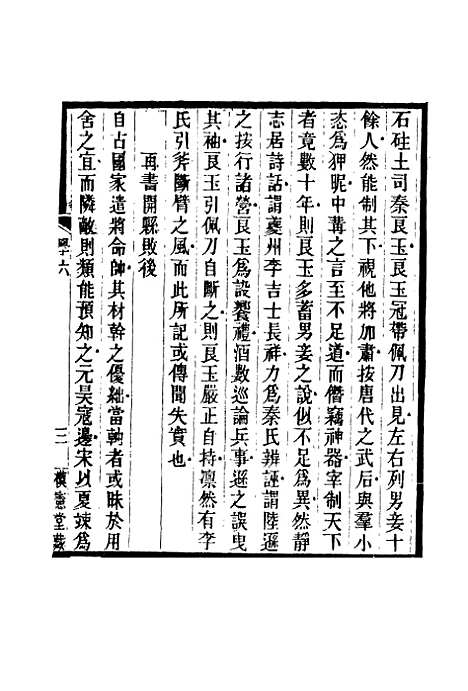 石硅土司秦良玉良玉冠帶佩刀出見左右列男妾十
餘人然能制其下視他將加肅按唐代之武后與羣小
恣為狎昵中冓之言至不足道而僭竊神器宰制天下
者竟數十年則良玉多蓄男妾之說似不足為異然靜
志居詩話謂夔州李吉士長祥力為秦氏辨誣謂陸遜
之按行諸營良玉為設饗禮酒數巡論兵事遜之誤曳
其袖良玉引佩刀自斷之則良玉嚴正自持凛然有李
氏引斧斷臂之風而此所記或傳聞失實也
再書開縣敗後
自古國家遣將命帥其材幹之優絀當軸者或昧於用
舍之宜而隣敵則類能預知之元昊寇邊宋以夏竦為
十六
三
樸憲堂藏